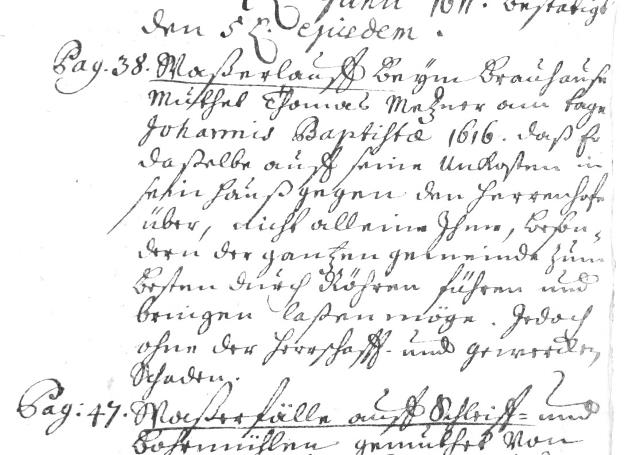 Junii 1611. bestätigt
den 5 ejusdem.
Pag. 38. Waßerlauff beym Brauhause
Muthet Thomas Metzner am tage
Johannis Baptistæ 1616. daß Er
daßelbe auff seine Unkosten in
sein Hauß gegen den Herrenhofe
über, nicht alleine Ihme, beson-
dern der gantzen gemeinde zum
besten durch Röhren führen und
bringen laßen möge. Jedoch
ohne der Herrschafft- und gewercken
Schaden.
Pag: 47. Waßerfälle auff Schleiff- und
Bohrmühlen gemuthet von